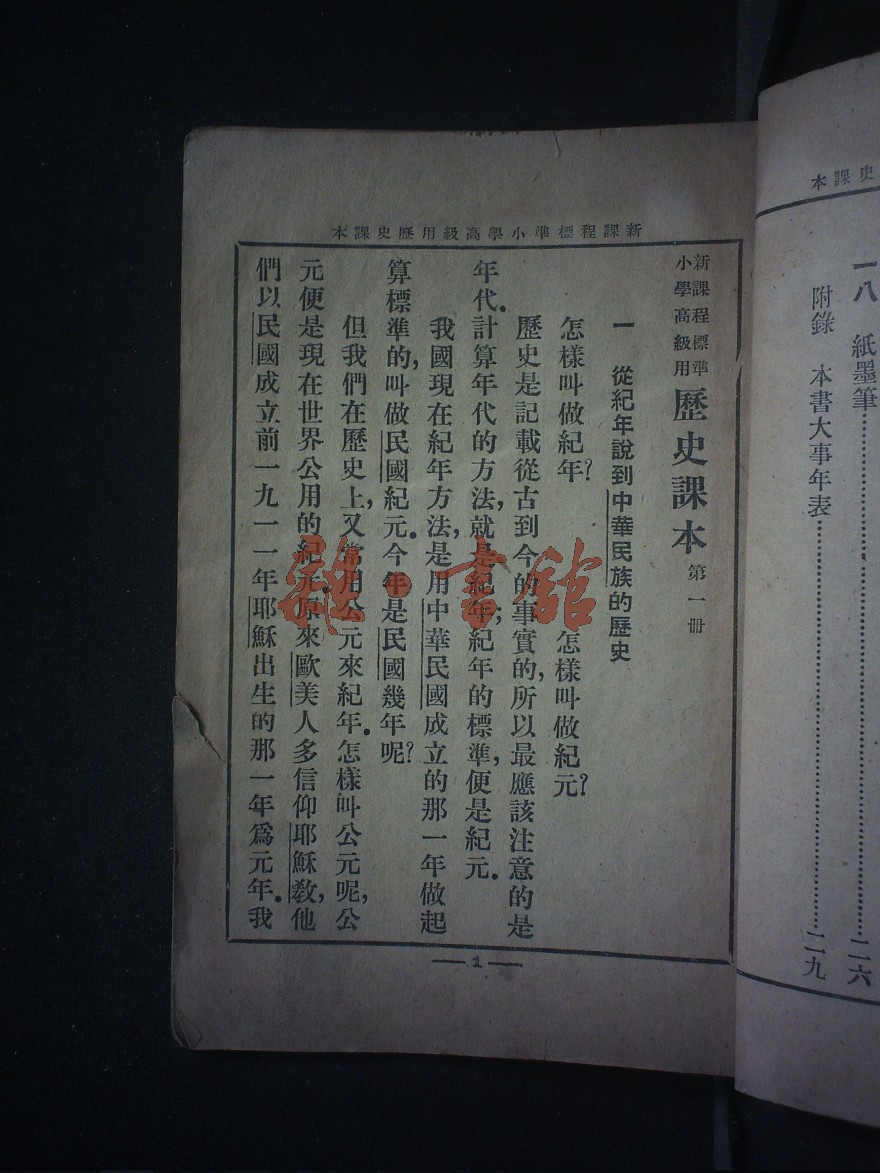 史課本
一八　紙墨筆……………二六
附錄　本書大事年表……………二九
新課程標準小學高級用歷史課本
新課程標準
小學高級用
歷史課本　第一冊
一　從紀年說到中華民族的歷史
怎樣叫做紀年?　怎樣叫做紀元?
歷史是記載從古到今的事實的,所以最應該注意的是
年代.計算年代的方法,就是紀年;紀年的標準,便是紀元.
我國現在紀年方法,是用中華民國成立的那一年做起
算標準的,叫做民國紀元.今年是民國幾年呢?
但我們在歷史上,又常用公元來紀年.怎樣叫公元呢,公
元便是現在世界公用的紀元.原來歐美人多信仰耶穌教,他
們以民國成立前一九一一年耶穌出生的那一年爲元年.我
—1—
雜·書館